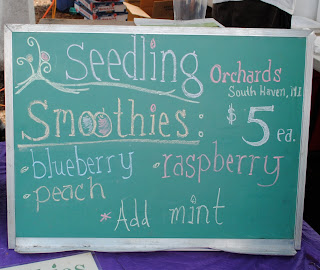 Seedling
Orchards
South Haven, MI
Smoothies: $5 ea.
·blueberry ·raspberry
·peach
*Add mint